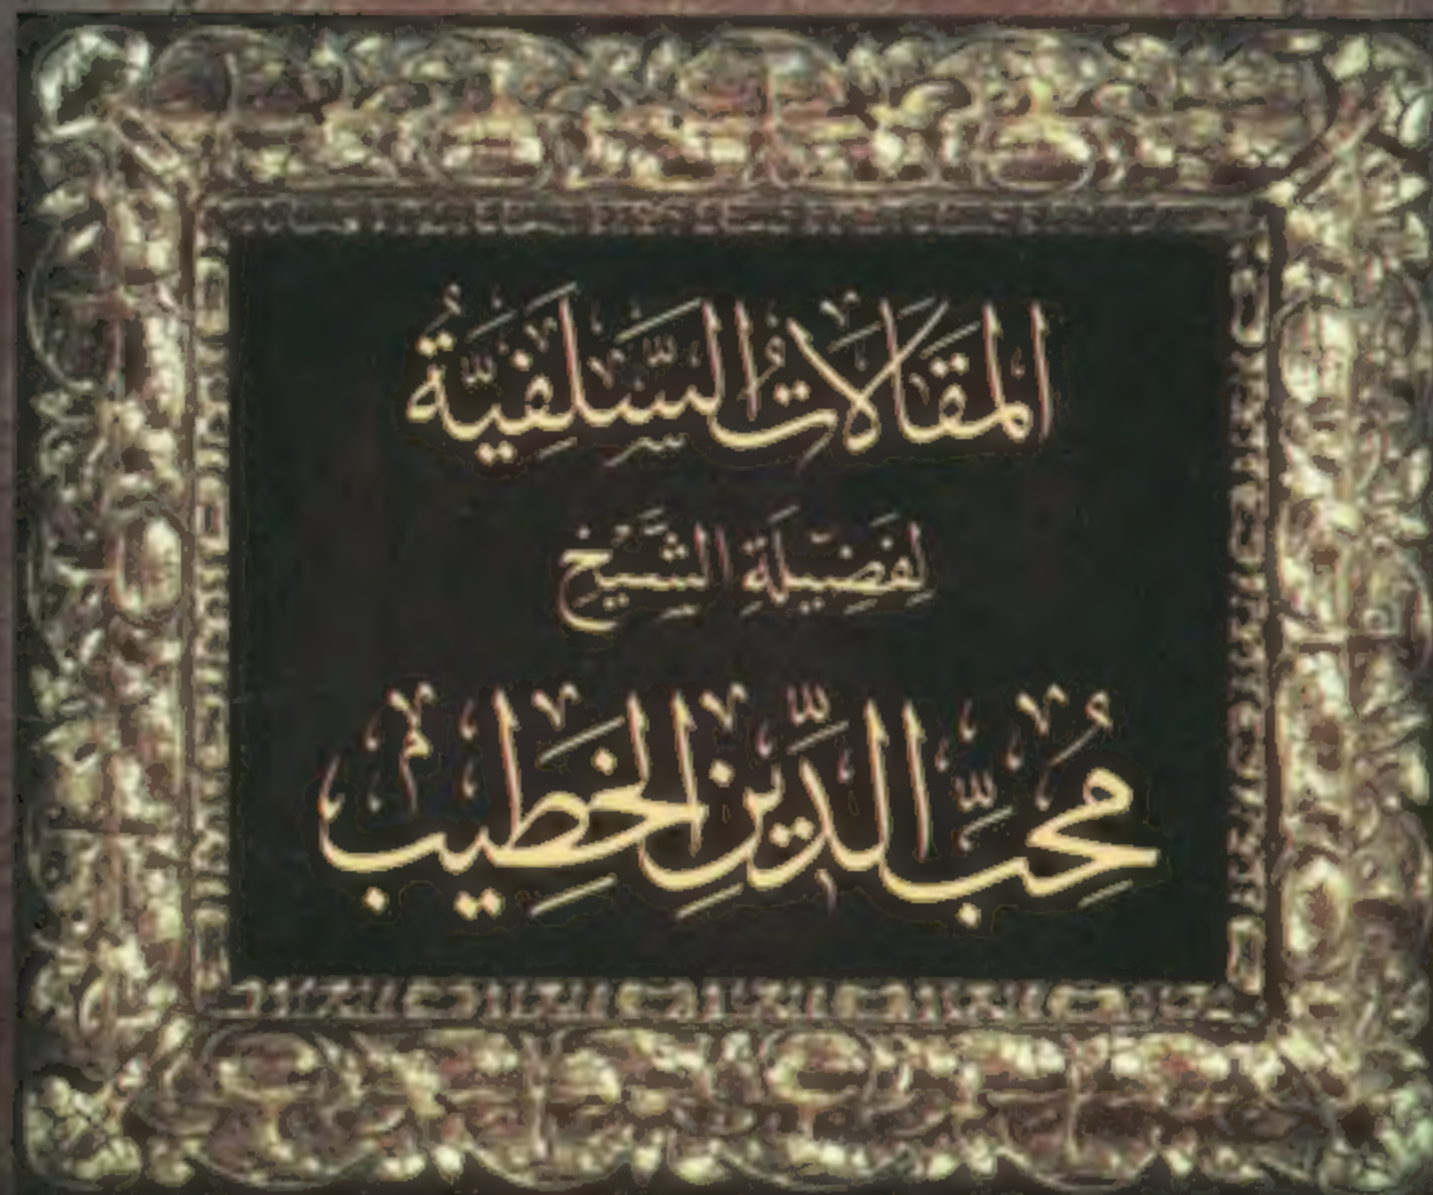 المَقَالَاتُ السَّلَفِيَّةُ
لِفَضِيلَةِ الشَّيْخِ
مُحِبِّ الدِّينِ الخَطِيبِ